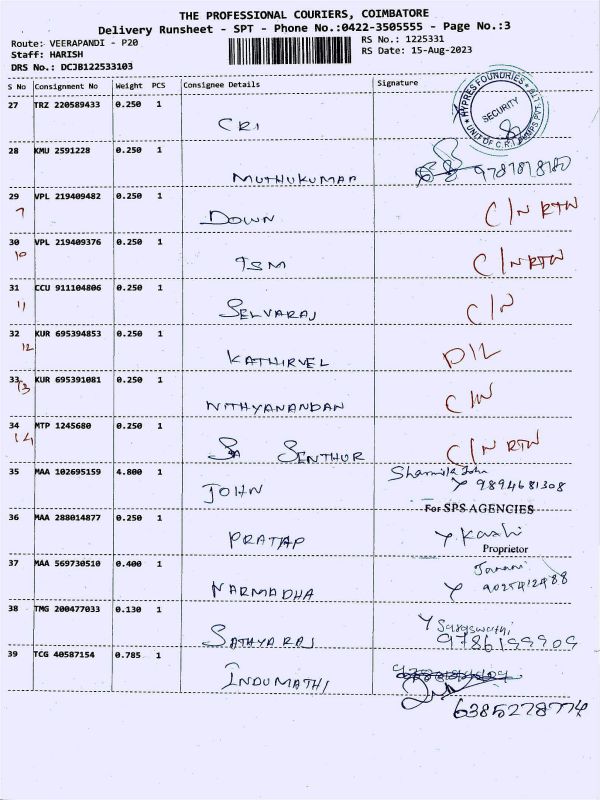 THE PROFESSIONAL COURIERS, COIMBATORE
Delivery Runsheet - SPT - Phone No.:0422-3505555 - Page No.:3
Route: VEERAPANDI - P20
RS No.: 1225331
Staff: HARISH
RS Date: 15-Aug-2023
DRS No.: DCJB122533103
S No Consignment No Weight PCS Consignee Details Signature
HYPRES FOUNDRIES
SECURITY
UNIT OF C.R.I. PUMPS PVT. LTD
27 TRZ 220589433 0.250 1
CRI
28 KMU 2591228 0.250 1
MUTHUKUMAR
29 VPL 219409482 0.250 1
DOWN C/N RTN
30 VPL 219409376 0.250 1
10 ISM C/N RTN
31 CCU 911104806 0.250 1
11 SELVARAJ C/N
32 KUR 695394853 0.250 1
12 KATHIRVEL D/L
33 KUR 695391081 0.250 1
13 NITHYANANDAN C/N
34 MTP 1245680 0.250 1
14 SENTHUR C/N RTN
35 MAA 102695159 4.800 1
JOHN Sharmila John
9894681308
For SPS AGENCIES
36 MAA 288014877 0.250 1
PRATAP
Proprietor
37 MAA 569730510 0.400 1
NARMADHA
38 TMG 200477033 0.130 1
SATHYARAJ Saraswathi
9786199909
39 TCG 40587154 0.785 1
INDUMATHI
6385278774